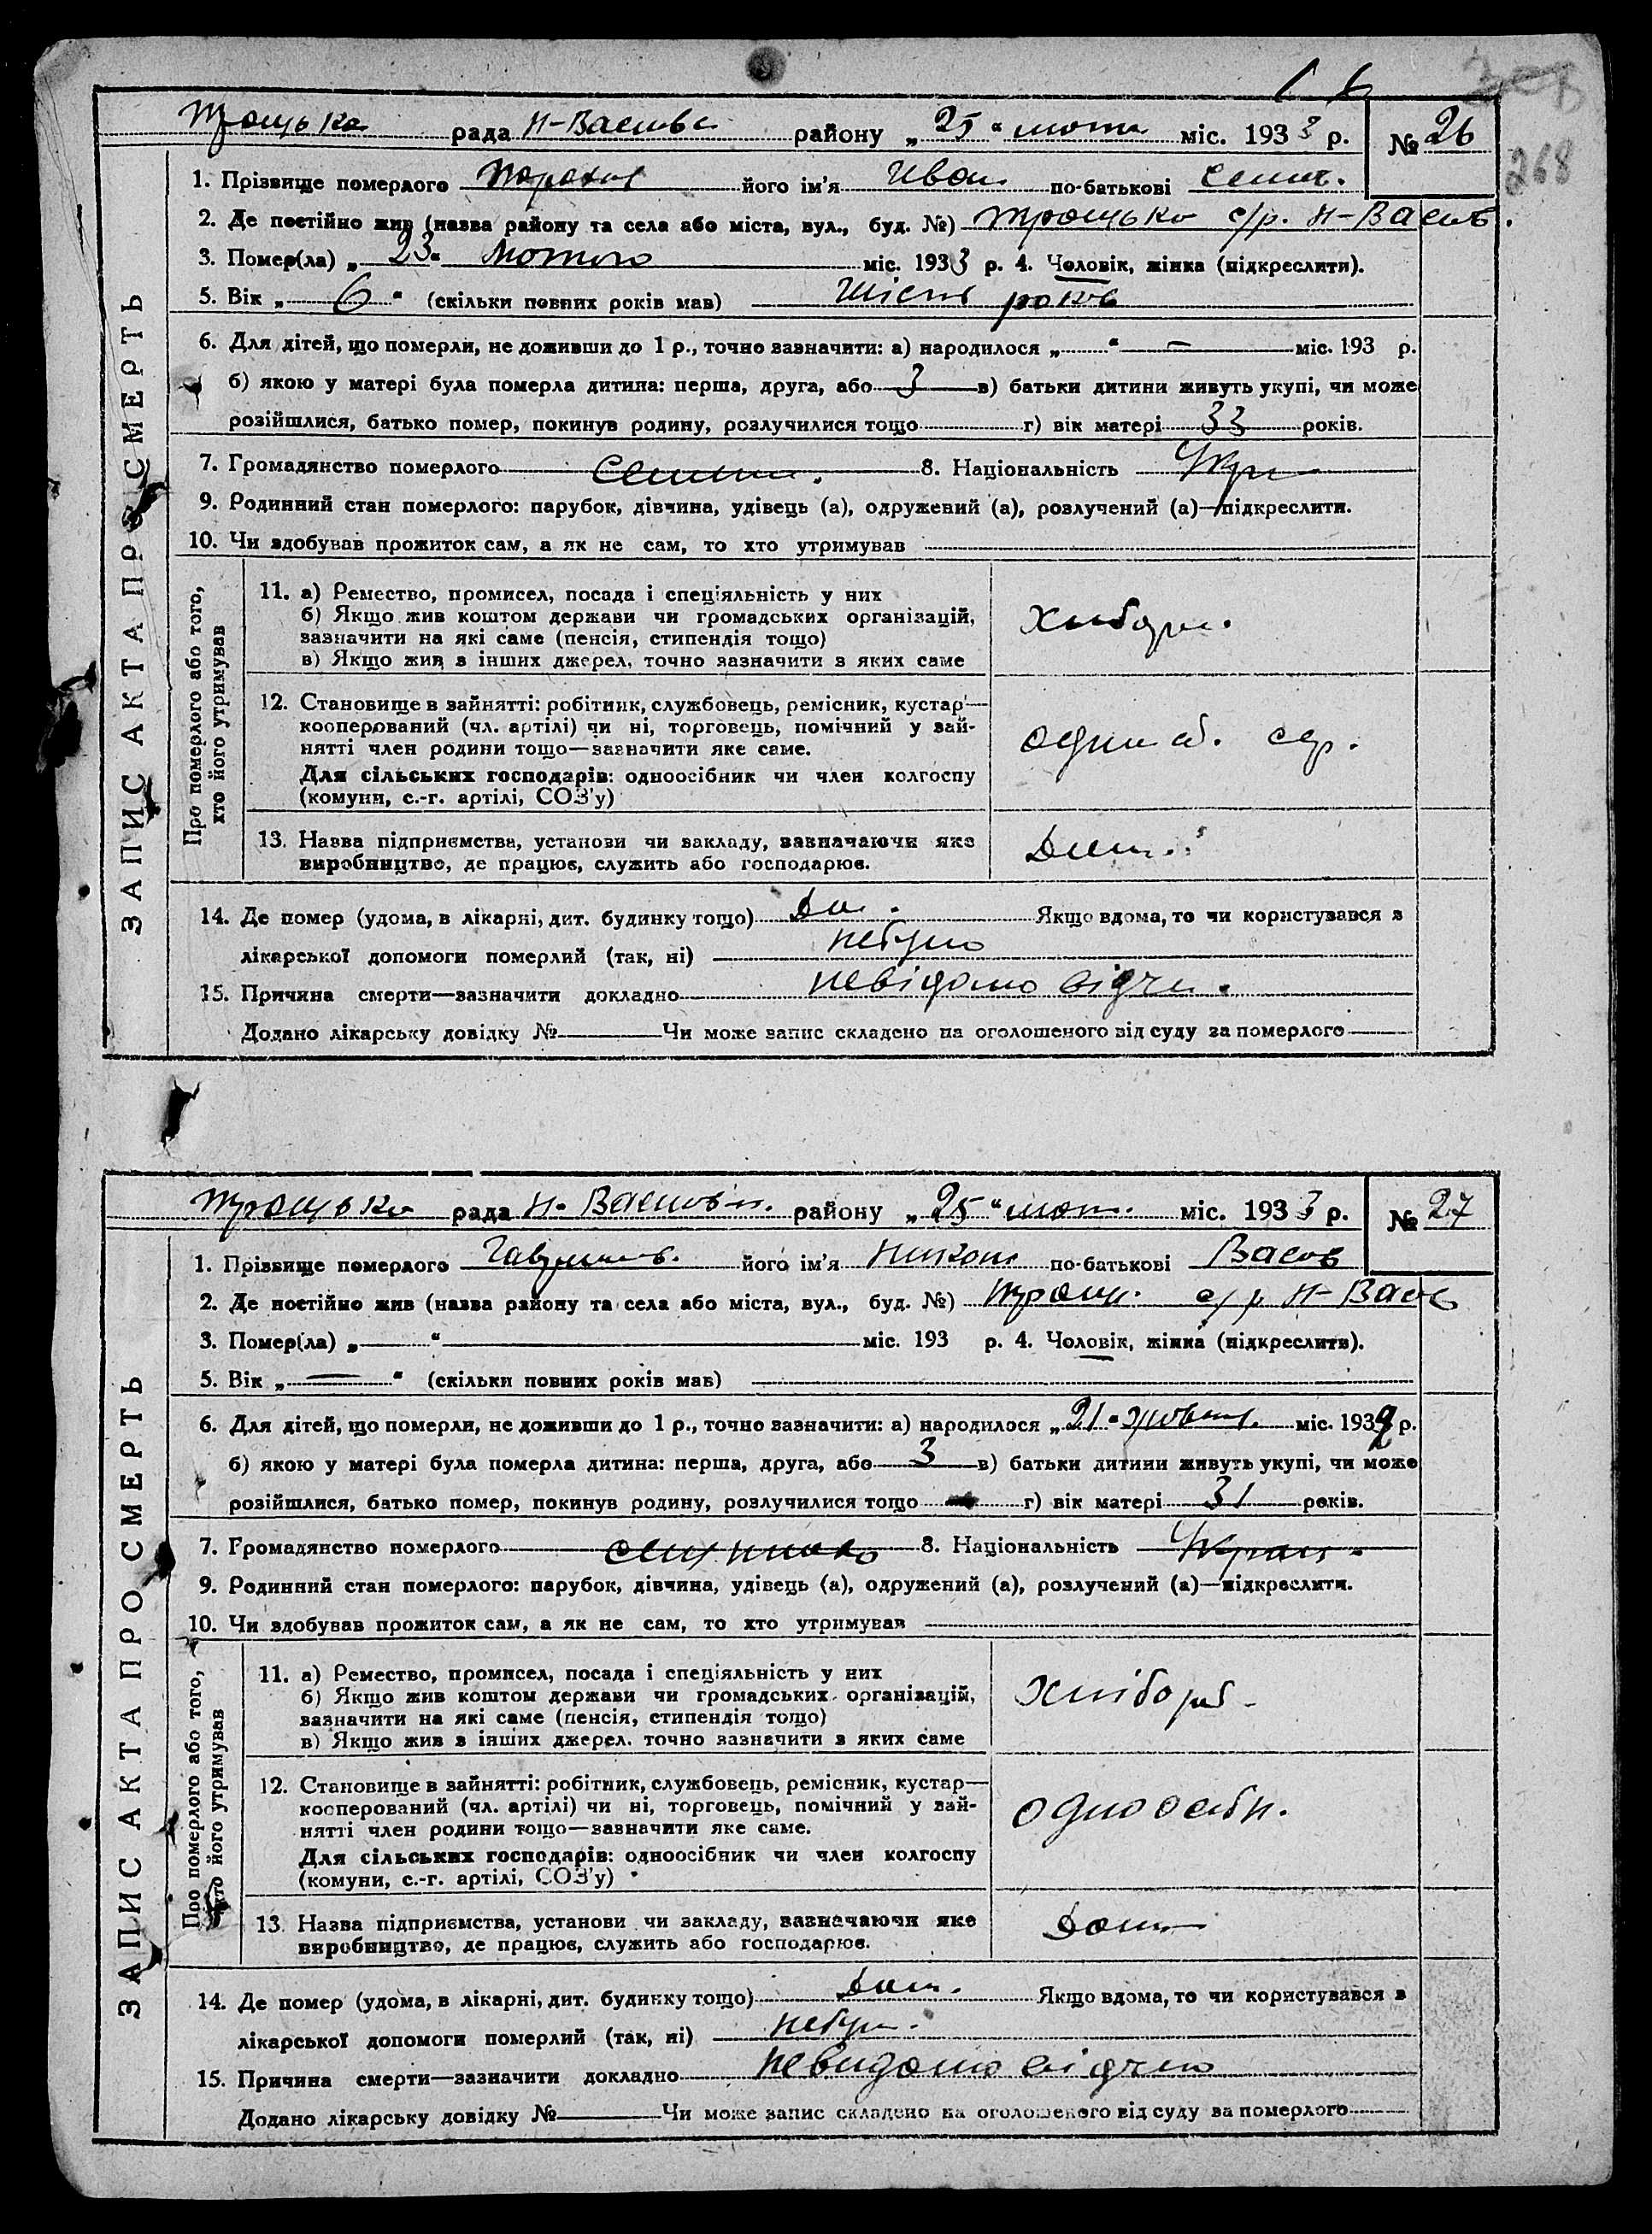 Троцька рада Н-Васив району „25“ лютн міс. 1933 р. № 26
268
1. Прізвище померлого його ім'я Иван по-батькові Семен.
2. Де постійно жив (назва району та села або міста, вул., буд. №) Троцько с/р. Н-Васив.
3. Помер(ла) „23“ Лютого міс. 1933 р. 4. Чоловік, жінка (підкреслити).
5. Вік „6“ (скільки повних років мав) Шість років
6. Для дітей, що померли, не доживши до 1 р., точно зазначити: а) народилося „ “ — міс. 193 р.
б) якою у матері була померла дитина: перша, друга, або 3 в) батьки дитини живуть укупі, чи може
розійшлися, батько помер, покинув родину, розлучилися тощо г) вік матері 33 років.
7. Громадянство померлого 8. Національність Укр
9. Родинний стан померлого: парубок, дівчина, удівець (а), одружений (а), розлучений (а)—підкреслити.
10. Чи здобував прожиток сам, а як не сам, то хто утримував
ЗАПИС АКТА ПРО СМЕРТЬ
Про померлого або того, хто його утримував
11. а) Ремество, промисел, посада і спеціяльність у них
б) Якщо жив коштом держави чи громадських організацій,
зазначити на які саме (пенсія, стипендія тощо)
в) Якщо жив з інших джерел, точно зазначити з яких саме
хлібор.
12. Становище в зайнятті: робітник, службовець, ремісник, кустар—
кооперований (чл. артілі) чи ні, торговець, помічний у зай-
нятті член родини тощо—зазначити яке саме.
Для сільських господарів: одноосібник чи член колгоспу
(комуни, с.-г. артілі, СОЗ'у)
13. Назва підприємства, установи чи закладу, зазначаючи яке
виробництво, де працює, служить або господарює.
14. Де помер (удома, в лікарні, дит. будинку тощо) Якщо вдома, то чи користувався з
лікарської допомоги померлий (так, ні) небуло
15. Причина смерти—зазначити докладно невідомо відчи.
Додано лікарську довідку № Чи може запис складено на оголошеного від суду за померлого
Троцько рада Н-Васив району „25“ лют. міс. 1933 р. № 27
1. Прізвище померлого його ім'я по-батькові Васив
2. Де постійно жив (назва району та села або міста, вул., буд. №) Троц. с/р Н-Васив
3. Помер(ла) „ “ міс. 193 р. 4. Чоловік, жінка (підкреслити).
5. Вік „—“ (скільки повних років мав)
6. Для дітей, що померли, не доживши до 1 р., точно зазначити: а) народилося „21“ жовтн. міс. 1932 р.
б) якою у матері була померла дитина: перша, друга, або 3 в) батьки дитини живуть укупі, чи може
розійшлися, батько помер, покинув родину, розлучилися тощо г) вік матері 31 років.
7. Громадянство померлого 8. Національність Украін.
9. Родинний стан померлого: парубок, дівчина, удівець (а), одружений (а), розлучений (а)—підкреслити.
10. Чи здобував прожиток сам, а як не сам, то хто утримував
ЗАПИС АКТА ПРО СМЕРТЬ
Про померлого або того, хто його утримував
11. а) Ремество, промисел, посада і спеціяльність у них
б) Якщо жив коштом держави чи громадських організацій,
зазначити на які саме (пенсія, стипендія тощо)
в) Якщо жив з інших джерел, точно зазначити з яких саме
хлібороб
12. Становище в зайнятті: робітник, службовець, ремісник, кустар—
кооперований (чл. артілі) чи ні, торговець, помічний у зай-
нятті член родини тощо—зазначити яке саме.
Для сільських господарів: одноосібник чи член колгоспу
(комуни, с.-г. артілі, СОЗ'у)
одноосібн.
13. Назва підприємства, установи чи закладу, зазначаючи яке
виробництво, де працює, служить або господарює.
14. Де помер (удома, в лікарні, дит. будинку тощо) Дом. Якщо вдома, то чи користувався з
лікарської допомоги померлий (так, ні) небул.
15. Причина смерти—зазначити докладно невидомо відчого
Додано лікарську довідку № Чи може запис складено на оголошеного від суду за померлого